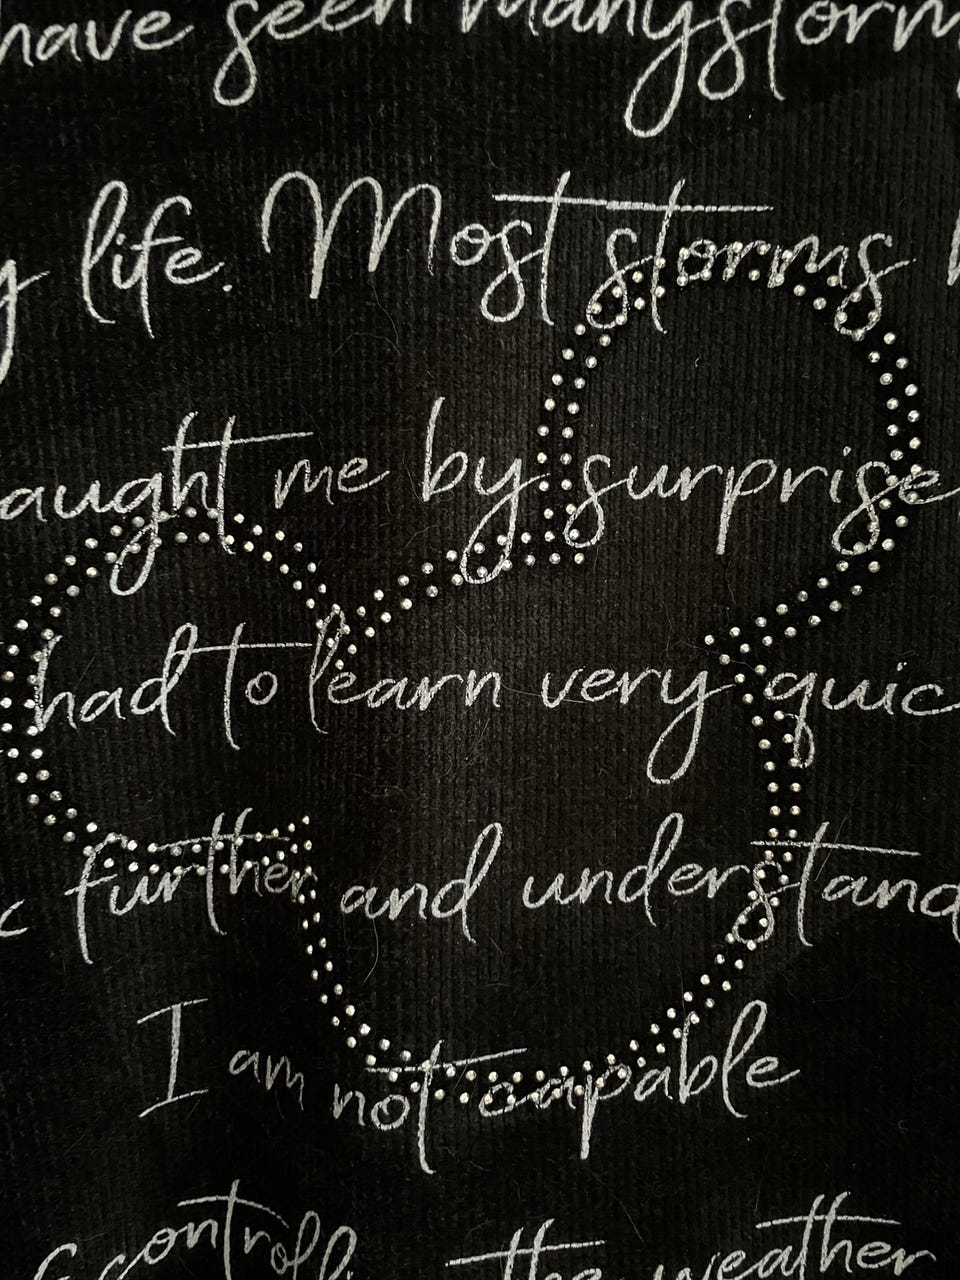 have seen many storm
y life. Most storms h
aught me by surprise,
had to learn very quic
k further and understand
I am not capable
f controll the weather